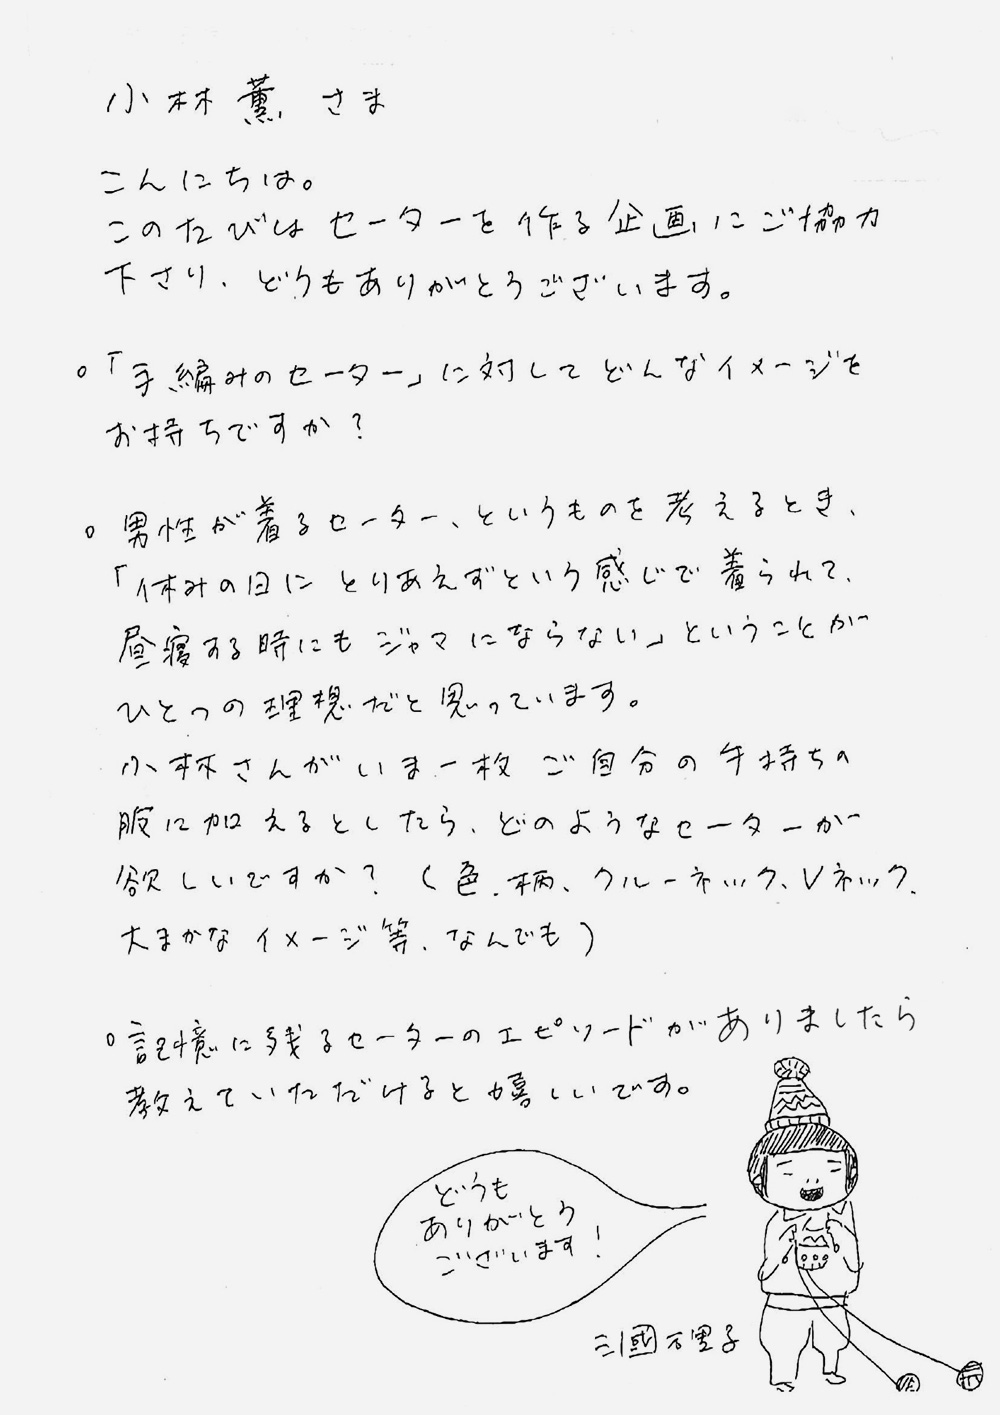 小林薫さま
こんにちは。
このたびはセーターを作る企画にご協力
下さり、どうもありがとうございます。
。「手編みのセーター」に対してどんなイメージを
お持ちですか？
。男性が着るセーター、というものを考えるとき、
「休みの日にとりあえずという感じで着られて、
昼寝する時にもジャマにならない」ということが
ひとつの理想だと思っています。
小林さんがいま一枚ご自分の手持ちの
服に加えるとしたら、どのようなセーターが
欲しいですか？（色、柄、クルーネック、Vネック、
大まかなイメージ等、なんでも）
。記憶に残るセーターのエピソードがありましたら
教えていただけると嬉しいです。
どうも
ありがとう
ございます！
三國万里子